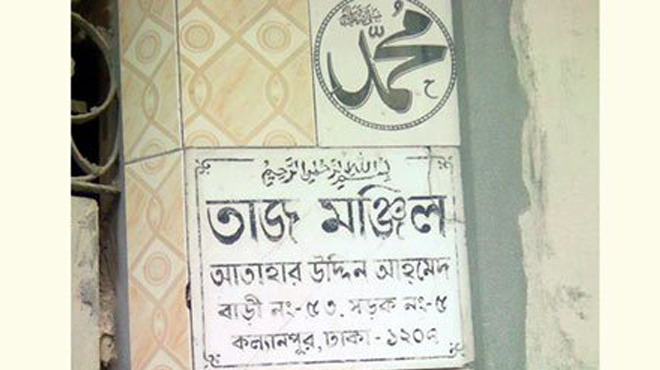 محمد
بسم الله الرحمن الرحيم
তাজ মঞ্জিল
আতাহার উদ্দিন আহমেদ
বাড়ী নং-৫৩. সড়ক নং-৫
কল্যানপুর, ঢাকা - ১২০৭